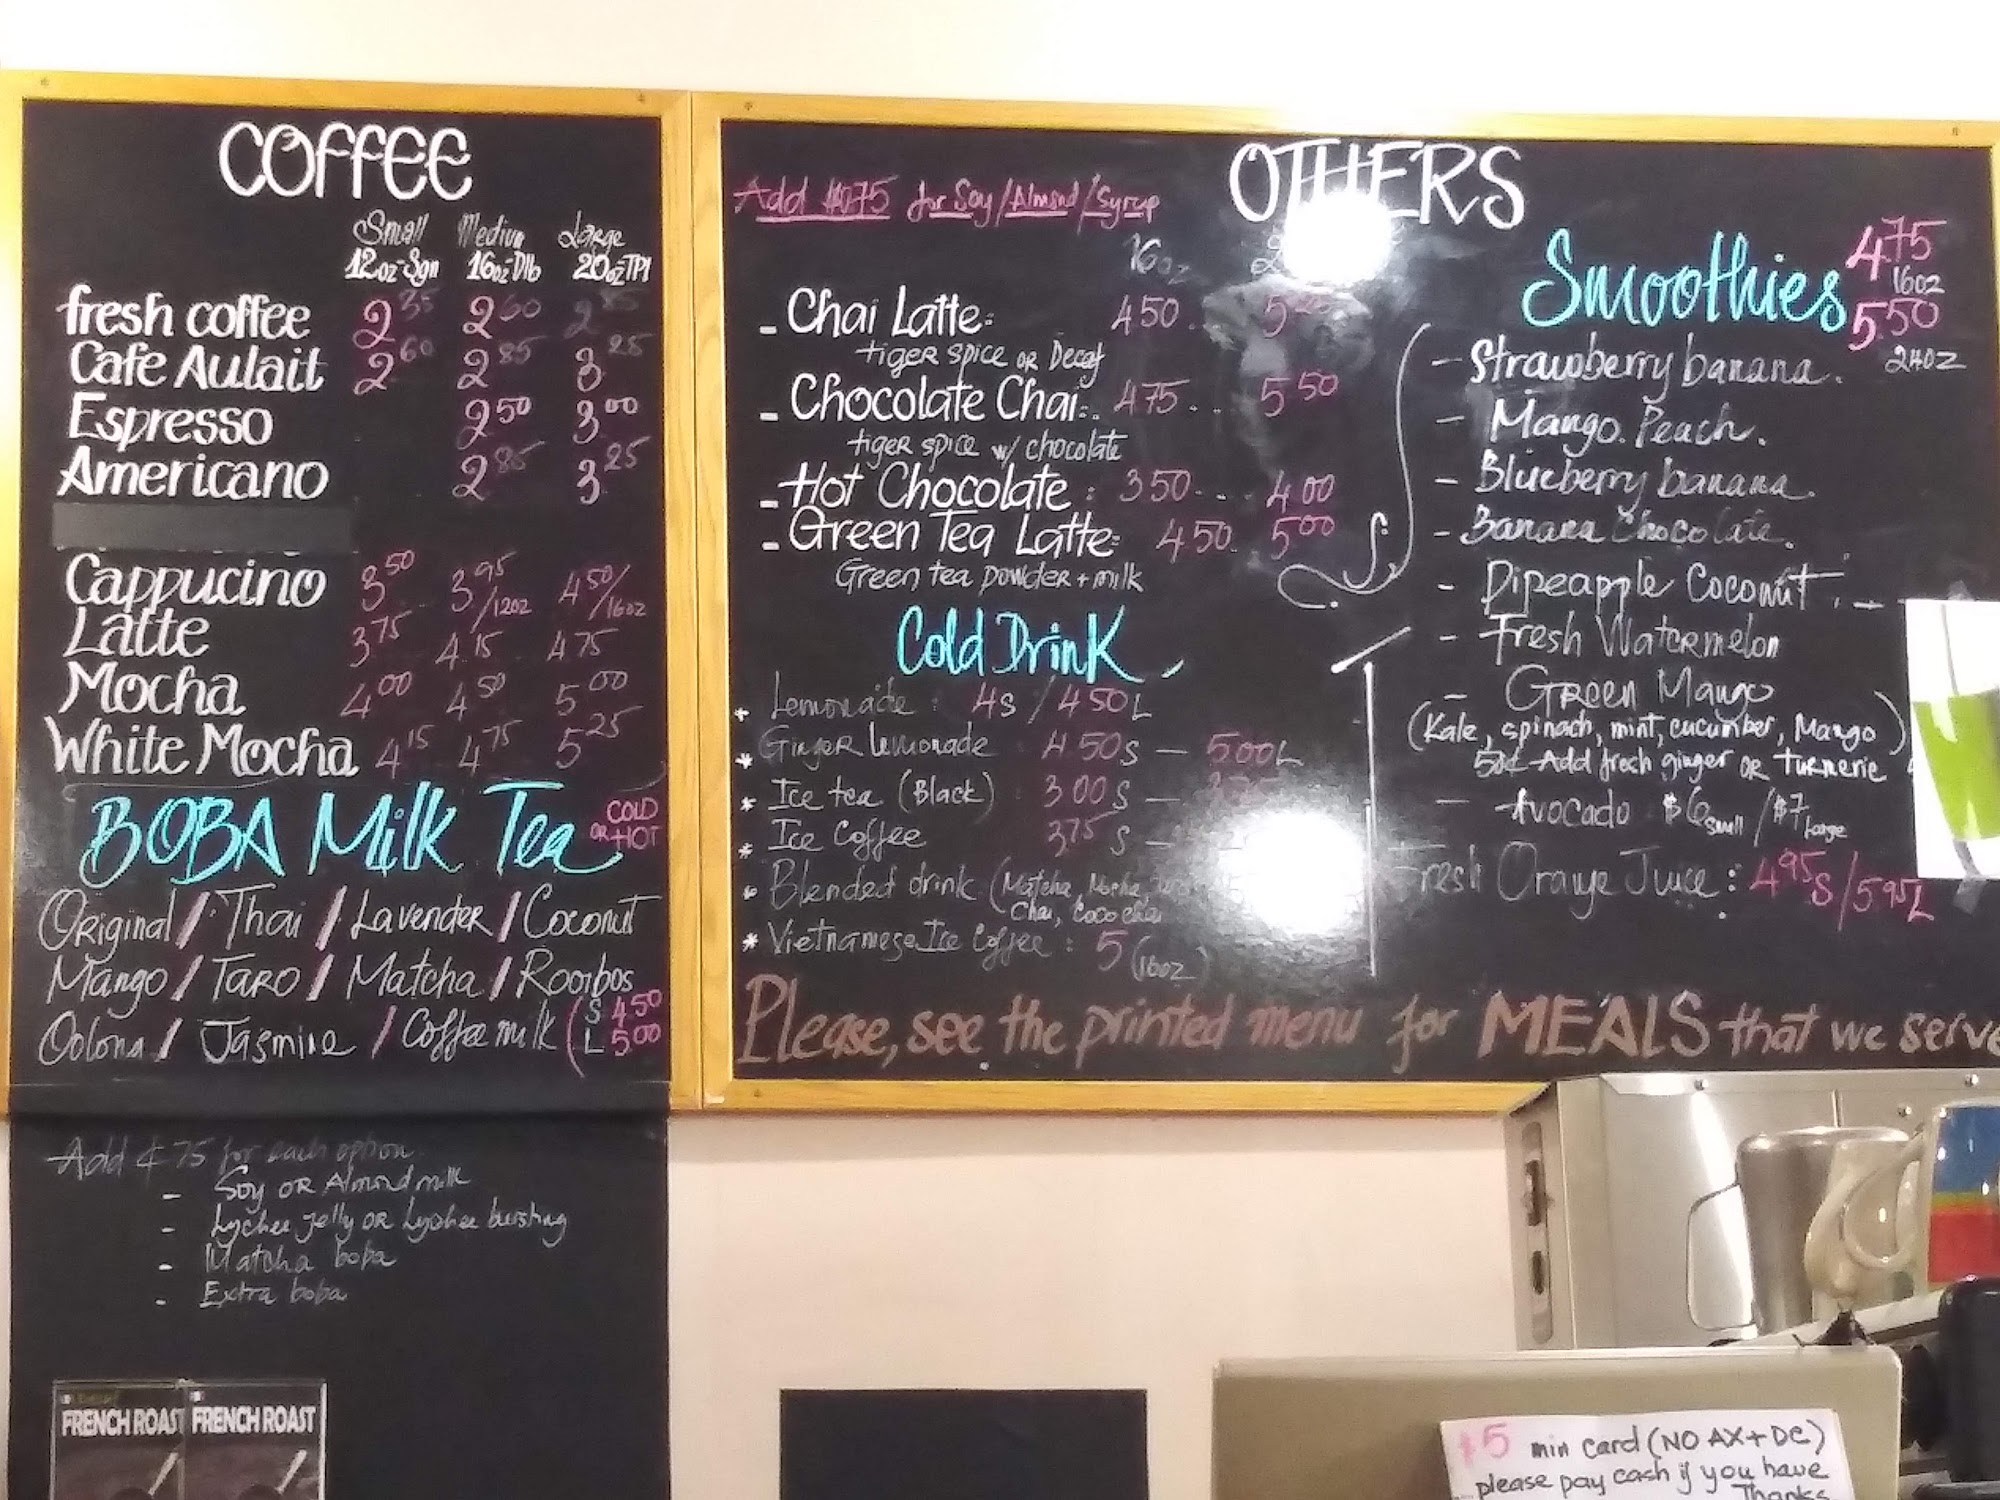 COFFEE
Small Medium Large
12oz-Sgn 16oz-Dlb 20oz-TPl
fresh coffee 2.35 2.60 2.85
Cafe Aulait 2.60 2.85 3.25
Espresso 2.50 3.00
Americano 2.85 3.25
Cappucino 3.50 3.95/12oz 4.50/16oz
Latte 3.75 4.15 4.75
Mocha 4.00 4.50 5.00
White Mocha 4.15 4.75 5.25
BOBA Milk Tea COLD OR HOT
Original / Thai / Lavender / Coconut
Mango / Taro / Matcha / Rooibos
Oolong / Jasmine / Coffee milk (S 4.50
L 5.00
Add ¢ 75 for each option
- Soy OR Almond milk
- Lychee jelly OR Lychee bursting
- Matcha boba
- Extra boba
FRENCH ROAST FRENCH ROAST
OTHERS
Add $0.75 for Soy/Almond/Syrup
16oz
- Chai Latte: 4.50
tiger spice or Decaf
- Chocolate Chai: 4.75 ... 5.50
tiger spice w/ chocolate
- Hot Chocolate: 3.50 ... 4.00
- Green Tea Latte: 4.50 5.00
Green tea powder + milk
Cold Drink
* Lemonade: 4s / 4.50L
* Ginger lemonade 4.50s — 5.00L
* Ice tea (Black) 3.00s —
* Ice Coffee 3.75s —
* Blended drink (Matcha, Mocha,
Chai, Coco chai
* Vietnamese Ice Coffee: 5 (16oz)
Smoothies 4.75
16oz
5.50
24oz
- Strawberry banana.
- Mango. Peach.
- Blueberry banana.
- Banana Chocolate.
- Pipeapple Coconut.
- Fresh Watermelon
- Green Mango
(Kale, spinach, mint, cucumber, Mango)
50¢ Add fresh ginger OR turmeric
- Avocado $6 small / $7 large
Fresh Orange Juice: 4.95s/5.95L
Please, see the printed menu for MEALS that we serve
$5 min card (NO AX + DC)
please pay cash if you have
Thanks